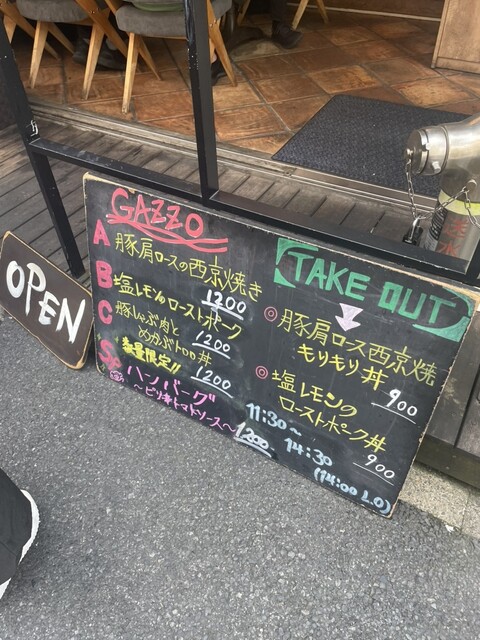 OPEN
GAZZO
A 豚肩ロースの西京焼き
1200
B 塩レモンのローストポーク
1200
C 豚しゃぶ肉と
めかぶトロロ丼
1200
数量限定!!
ハンバーグ
〜ピリ辛トマトソース〜 1200
TAKE OUT
◎豚肩ロース西京焼
もりもり丼
900
◎塩レモンの
ローストポーク丼
900
11:30〜
14:30
(14:00 L.O)